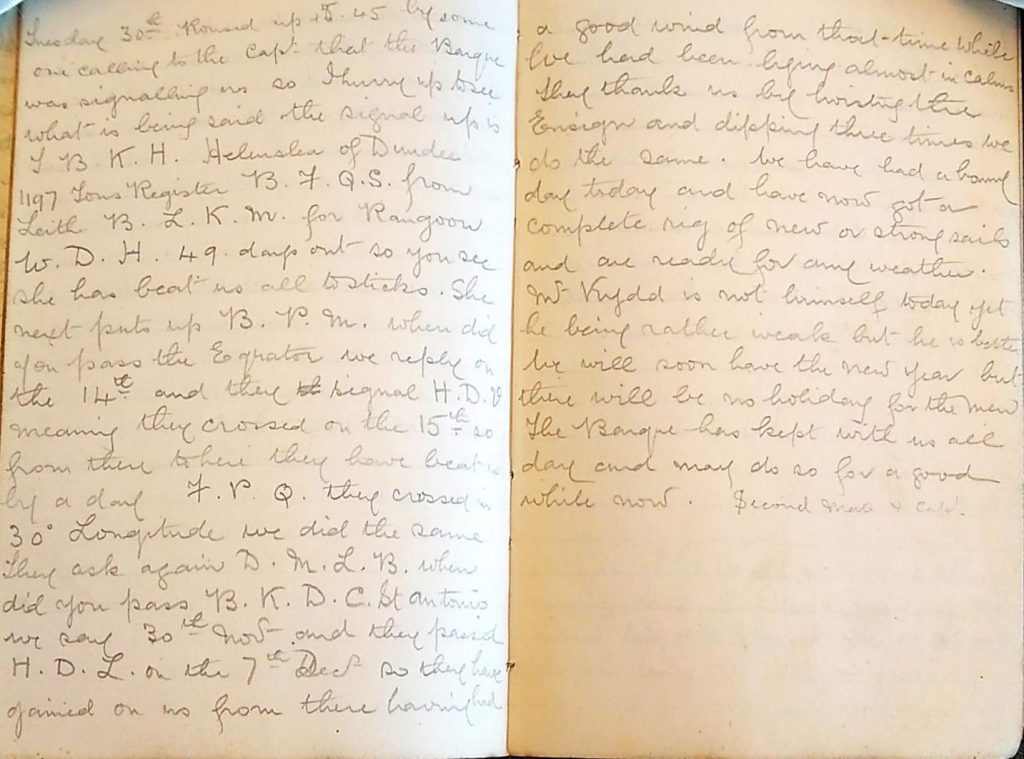 Tuesday 30th Roused up at 5.45 by some
one calling to the Capt. that the Barque
was signalling us so I hurry up to see
what is being said the signal up is
J B K. H. Helenslea of Dundee
1197 Tons Register B. F. Q. S. from
Leith B. L. K. M. for Rangoon
W. D. H. 49 days out so you see
she has beat us all to sticks. She
next puts up B. P. M. when did
you pass the Equator we reply on
the 14th and they signal H. D. V
meaning they crossed on the 15th so
from there to here they have beat us
by a day F. P. Q. they crossed in
30° Longtude we did the same
They ask again D. M. L. B. when
did you pass B. K. D. C. St Antonio
we say 30th Novr and they passed
H. D. L. on the 7th Decr so they have
gained on us from there having had
a good wind from that time while
We had been lying almost in calms
They thank us by hoisting the
Ensign and dipping three times we
do the same. We have had a bonny
day today and have now got a
complete rig of new or strong sails
and are ready for any weather.
Mr Kydd is not himself today yet
he being rather weak but he is better
We will soon have the new year but
there will be no holiday for the men
The Barque has kept with us all
day and may do so for a good
while now. Second Mate & Capt.